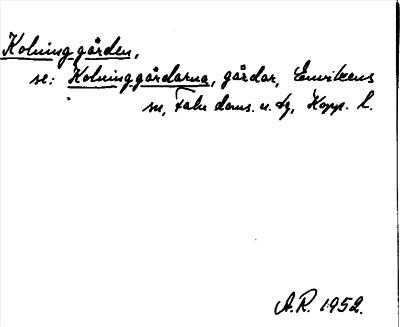 Kolninggården,
se: Kolninggårdarna, gårdar, Envikens
sn, Falu doms. n. tg, Kopp. l.
A.R. 1952.